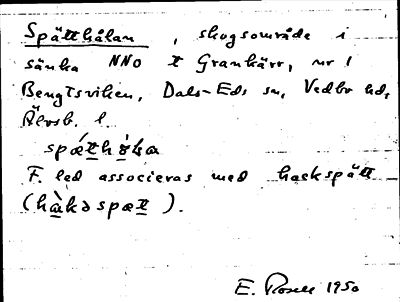 Spätthålan, skogsområde i
sänka NNO t Grankärr, nr 1
Bengtsviken, Dals-Eds sn, Vedbo hd,
Älvsb. l.
spǽt̲hò̲la
F. led associeras med hackspätt
(hà̲kəspæt̲).
E. Rosell 1950